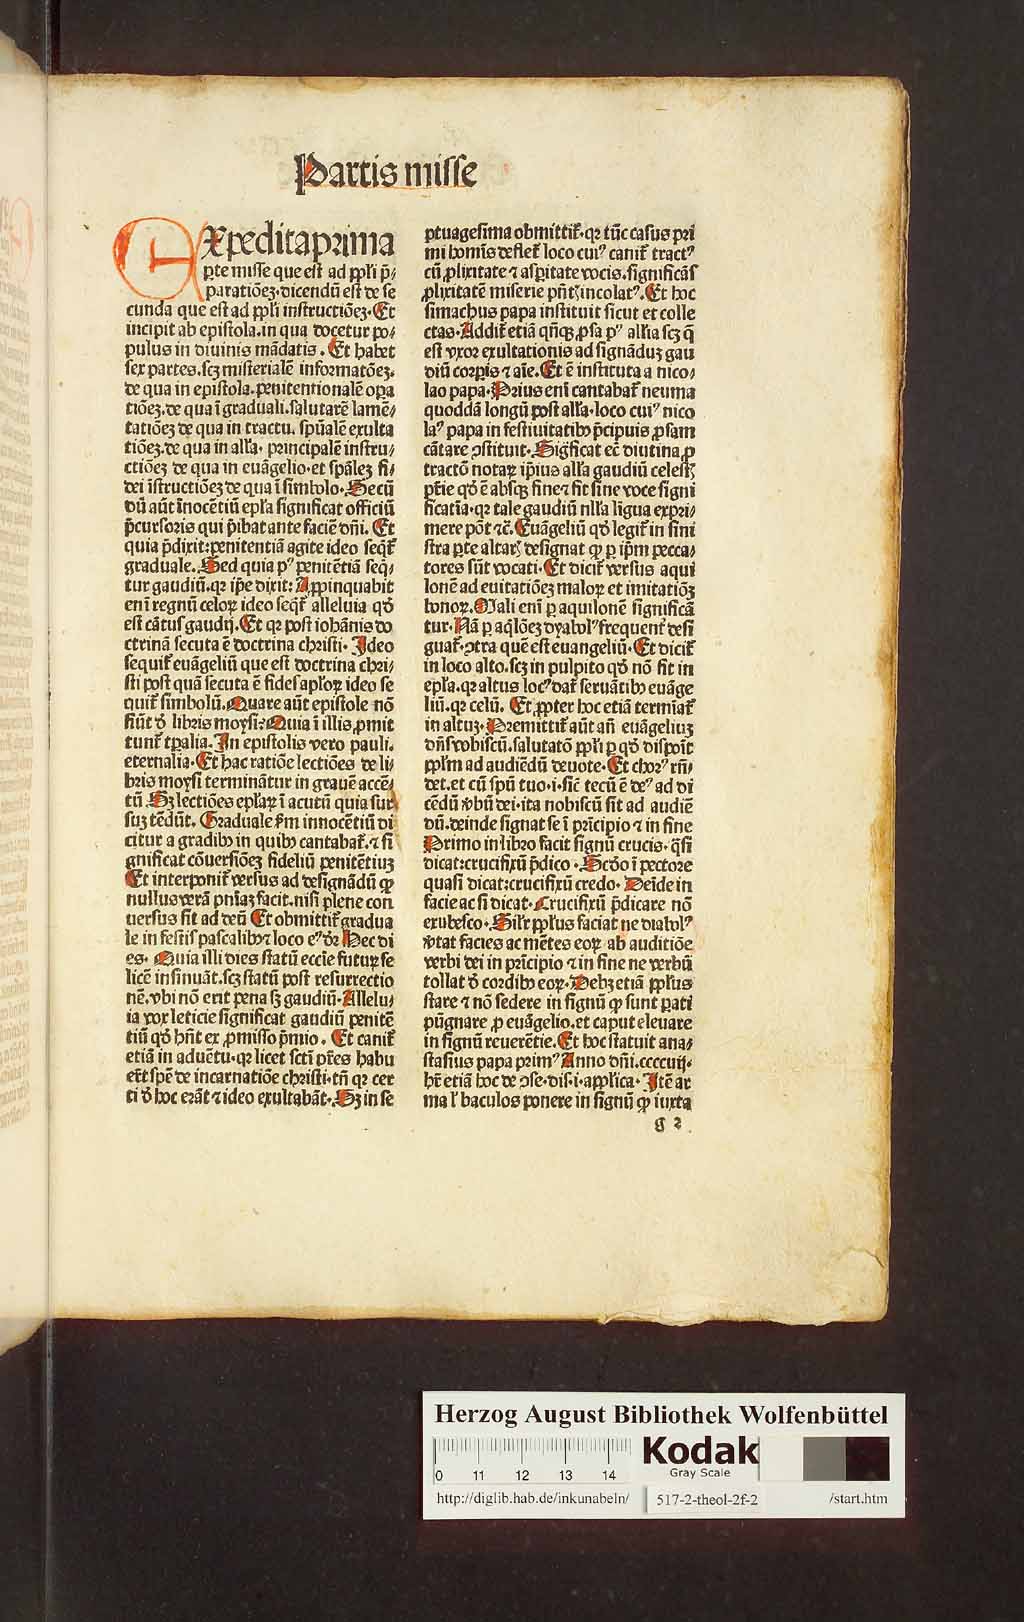 Partis misse
Expedita prima
ꝑte misse que est ad ppľi p̄-
paratiōeʒ. dicendū est de se
cunda que est ad ppľi instructiōeʒ. Et
incipit ab epistola. in qua docetur po-
pulus in diuinis mādatis. Et habet
sex partes. scʒ misterialē informatōeʒ.
de qua in epistola. penitentionalē oꝑa
tiōeʒ. de qua ī graduali. salutarē lamē-
tatiōeʒ de qua in tractu. spūalē exulta
tiōeʒ. de qua in alľa. principalē instru-
ctiōeʒ de qua in euāgelio. et spāleʒ fi-
dei īstructiōeʒ de qua ī simbolo. Secū
dū aūt īnocētiū epľa significat officiū
p̄cursoris qui p̄ibat ante faciē dñi. Et
quia p̄dixit: penitentiā agite ideo seqͭ
graduale. Sed quia pꝰ penitētiā seq̄-
tur gaudiū. qꝛ ip̄e dixit: Appinquabit
enī regnū celoꝝ ideo seqͭ alleluia qď
est cātus gaudij. Et qꝛ post iohānis do
ctrinā secuta ē doctrina christi. Ideo
sequiť euāgeliū que est doctrina chri-
sti post quā secuta ē fides apľoꝝ ideo se
quiť simbolū. Quare aūt epistole nō
fiūt ď libris moysi? Quia ī illis ꝓmit
tunť tꝑalia. In epistolis vero pauli.
eternalia. Et hac ratiōe lectiōes de li-
bris moysi terminātur in grauē accē-
tū Sʒ lectiōes epľaꝝ ī acutū quia sur
suʒ tēdūt. Graduale ẜm innocētiū di
citur a gradibꝰ in quibꝰ cantabať. ⁊ si
gnificat cōuersiōeʒ fideliū penitētiuʒ
Et interponiť versus ad designādū ꝙ
nullus verā pn̄iaʒ facit. nisi plene con
uersus sit ad deū Et obmittiť gradua
le in festis pascalibꝰ ⁊ loco eꝰ dꝛ Hec di
es. Quia illi dies statū eccľie futuꝝ fe
licē insinuāt. scʒ statū post resurrectio
nē. vbi nō erit pena sʒ gaudiū. Allelu-
ia vox leticie significat gaudiū penitē
tiū qď hn̄t ex ꝓmisso p̄mio. Et caniť
etiā in aduētu. qꝛ licet sctī pr̄es habu
er̄t spē de incarnatiōe christi. tn̄ qꝛ cer
ti ď hoc erāt ⁊ ideo exultabāt. Sʒ in se
ptuagesima obmittiť. qꝛ tūc casus pri
mi homīs defleť loco cuiꝰ caniť tractꝰ
cū ꝓlixitate ⁊ asꝑitate vocis. significās
ꝓlixitatē miserie pn̄tꝭ incolatꝰ. Et hoc
simachus papa instituit sicut et colle
ctas. Addiť etiā qn̄qꝫ ꝓsa pꝰ alľia scʒ q̄
est vxor exultationis ad signāduʒ gau
diū corꝑis ⁊ aīe. Et ē instituta a nico-
lao papa. Prius enī cantabať neuma
quoddā longū post alľa. loco cuiꝰ nico
laꝰ papa in festiuitatibꝰ p̄cipuis ꝓsam
cātare ꝯstituit. Sigficat ec̄ diutina ꝓ
tractō notaꝝ ip̄ius alľa gaudiū celestꝭ
pr̄ie qď ē absqꝫ fine ⁊ fit sine voce signi
ficatia. qꝛ tale gaudiū nľla ligua expri-
mere pōt ⁊c̄. Euāgeliū qď legiť in sini
stra ꝑte altarꝭ designat ꝙ ꝑ ip̄m pecca-
tores sūt vocati. Et diciť versus aqui
lonē ad euitatiōeʒ maloꝝ et imitatiōʒ
bonoꝝ. Mali enī ꝑ aquilonē significā
tur. Nā ꝑ aq̄lōeʒ dyabolꝰ frequenť desi
guať. ꝯtra quē est euangeliū. Et diciť
in loco alto. scʒ in pulpito qď nō fit in
epľa. qꝛ altus locꝰ dať seruātibꝰ euāge
liū. qꝛ celū. Et ꝓpter hoc etiā termīať
in altuʒ. Premittiť aūt an̄ euāgeliuʒ
dn̄s vobiscū. salutatō ppľi ꝑ qď dispōit
ppľm ad audiēdū deuote. Et chorꝰ rn̄-
det. et cū spū tuo. i. sic̄ tecū ē deꝰ ad di
cēdū ꝟbū dei. ita nobiscū sit ad audiē
dū. deinde signat se ī prīcipio ⁊ in fine
Primo in libro facit signū crucis. q̄si
dicat: crucifixū p̄dico. Scďo ī pectore
quasi dicat: crucifixū credo. Deīde in
facie ac si dicat. Crucifixū p̄dicare nō
erubesco. Silr ppľus faciat ne diabolꝰ
ꝟtat facies ac mētes eoꝝ ab auditiōe
verbi dei in prīcipio ⁊ in fine ne verbū
tollat ď cordibꝰ eoꝝ. Debʒ etiā ppľus
stare ⁊ nō sedere in signū ꝙ sunt ꝑati
pūgnare ꝓ euāgelio. et caput eleuare
in signū reuerētie. Et hoc statuit ana-
stasius papa primꝰ Anno dñi. ccccvij.
hr̄ etiā hoc de ꝯse. dis. i. apľica. Itē ar
ma ľ baculos ponere in signū ꝙ iuxta
g 2
Herzog August Bibliothek Wolfenbüttel
0 11 12 13 14
Kodak
Gray Scale
http://diglib.hab.de/inkunabeln/ 517-2-theol-2f-2 /start.htm